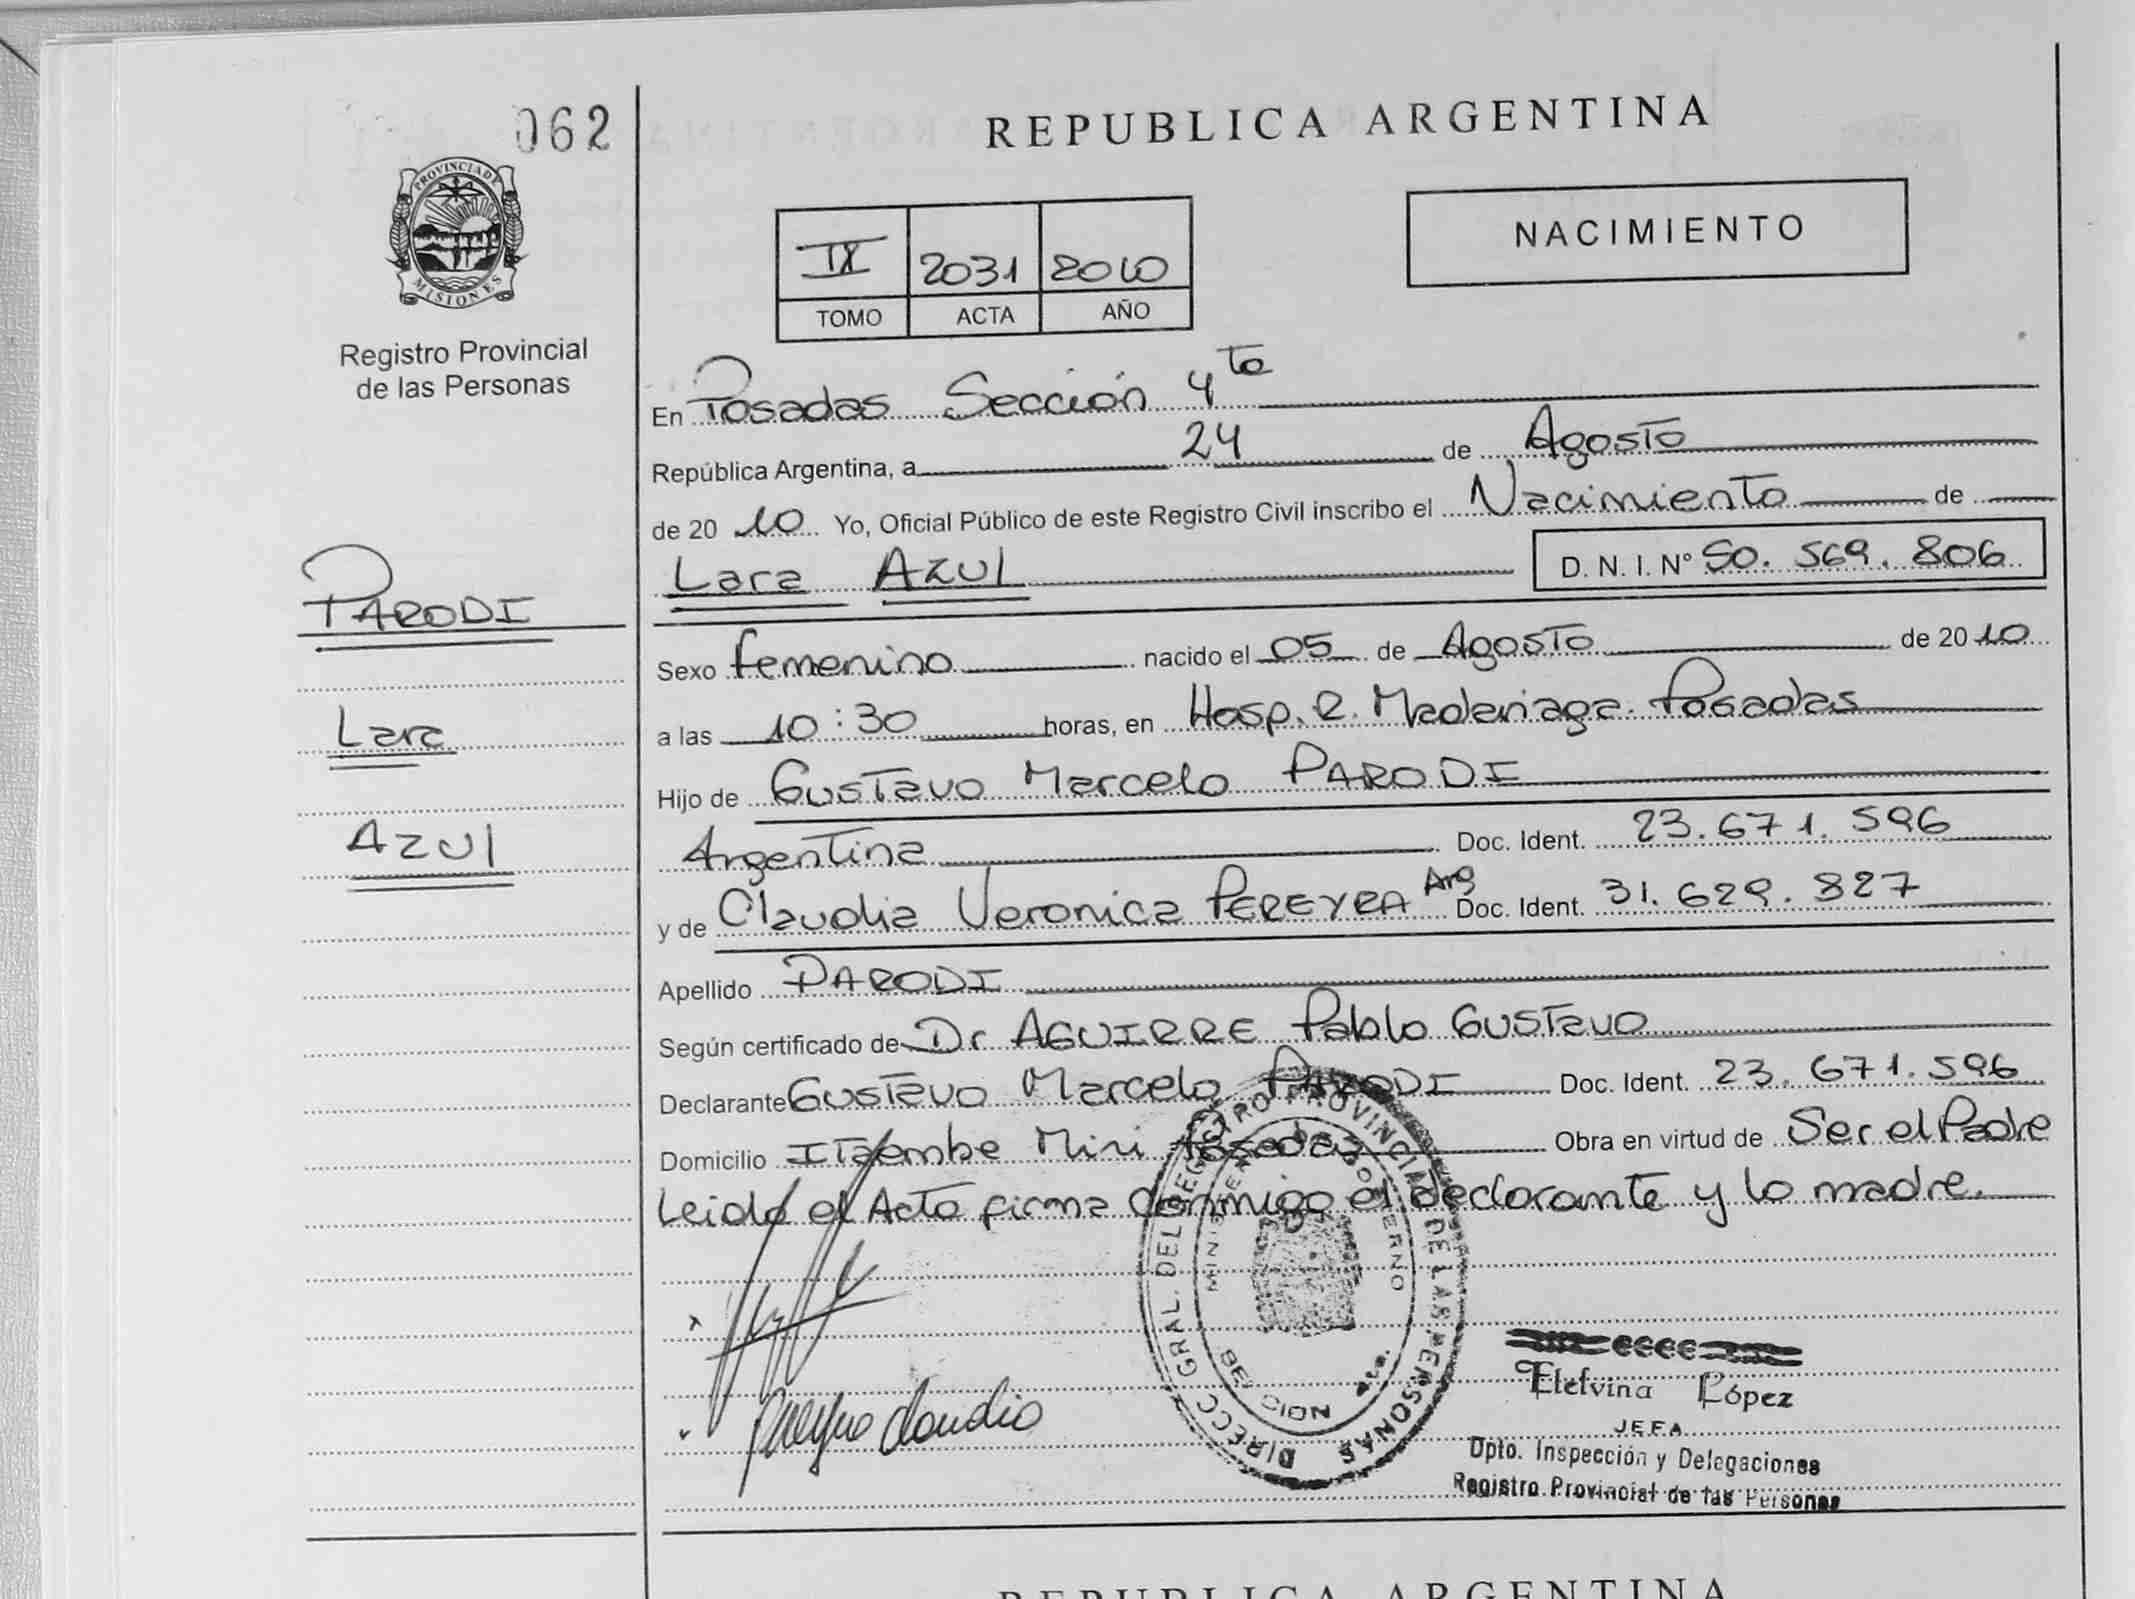 062
PROVINCIA DE
MISIONES
Registro Provincial
de las Personas
PARODI
Lara
AZUL
REPUBLICA ARGENTINA
IX 2031 2010
TOMO ACTA AÑO
NACIMIENTO
En Posadas Sección 4ta
República Argentina, a 24 de Agosto
de 2010 Yo, Oficial Público de este Registro Civil inscribo el Nacimiento de
Lara AZUL D. N. I. Nº 50.569.806
Sexo femenino nacido el 05 de Agosto de 2010
a las 10:30 horas, en Hosp. R. Madariaga. Posadas
Hijo de Gustavo Marcelo PARODI
Argentina Doc. Ident. 23.671.596
y de Claudia Veronica PEREYRA Arg Doc. Ident. 31.629.827
Apellido PARODI
Según certificado de Dr AGUIRRE Pablo Gustavo
Declarante Gustavo Marcelo PARODI Doc. Ident. 23.671.596
Domicilio Itaembe Mini Posadas Obra en virtud de Ser el Padre
Leido el Acto firma conmigo el declarante y la madre.
DIRECC. GRAL. DEL REGISTRO PROVINCIAL DE LAS PERSONAS
MINISTERIO DE GOBIERNO
SECCION 4ta.
Claudia
Etelvina López
JEFA
Dpto. Inspección y Delegaciones
Registro Provincial de las Personas
REPUBLICA ARGENTINA